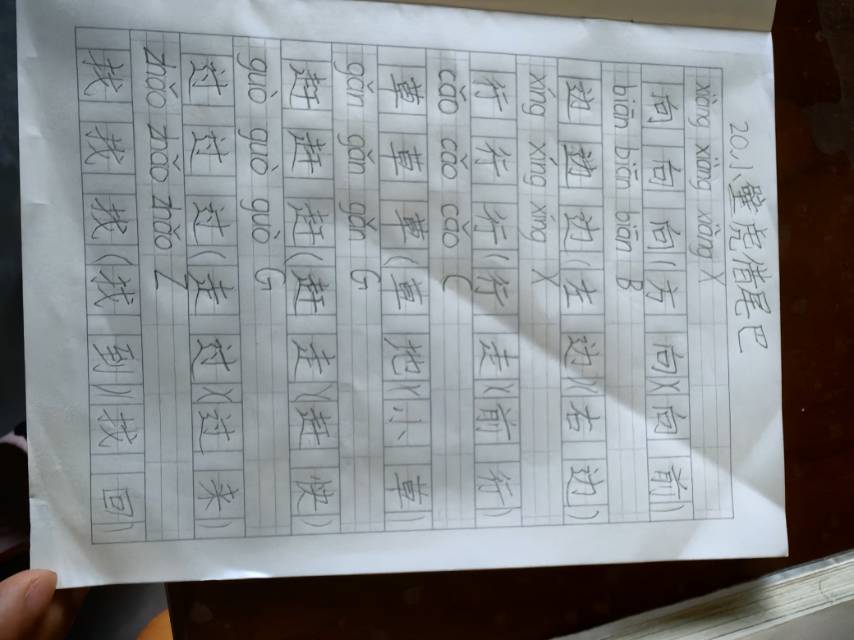 20.小壁虎借尾巴
xiàng xiàng xiàng X
向向向(方向)(向前)
biān biān biān B
边边边(左边)(右边)
xíng xíng xíng X
行行行(行走)(前行)
cǎo cǎo cǎo C
草草草(草地)(小草)
gǎn gǎn gǎn G
赶赶赶(赶走)(赶快)
guò guò guò G
过过过(走过)(过来)
zhǎo zhǎo zhǎo Z
找找找(找到)(找回)